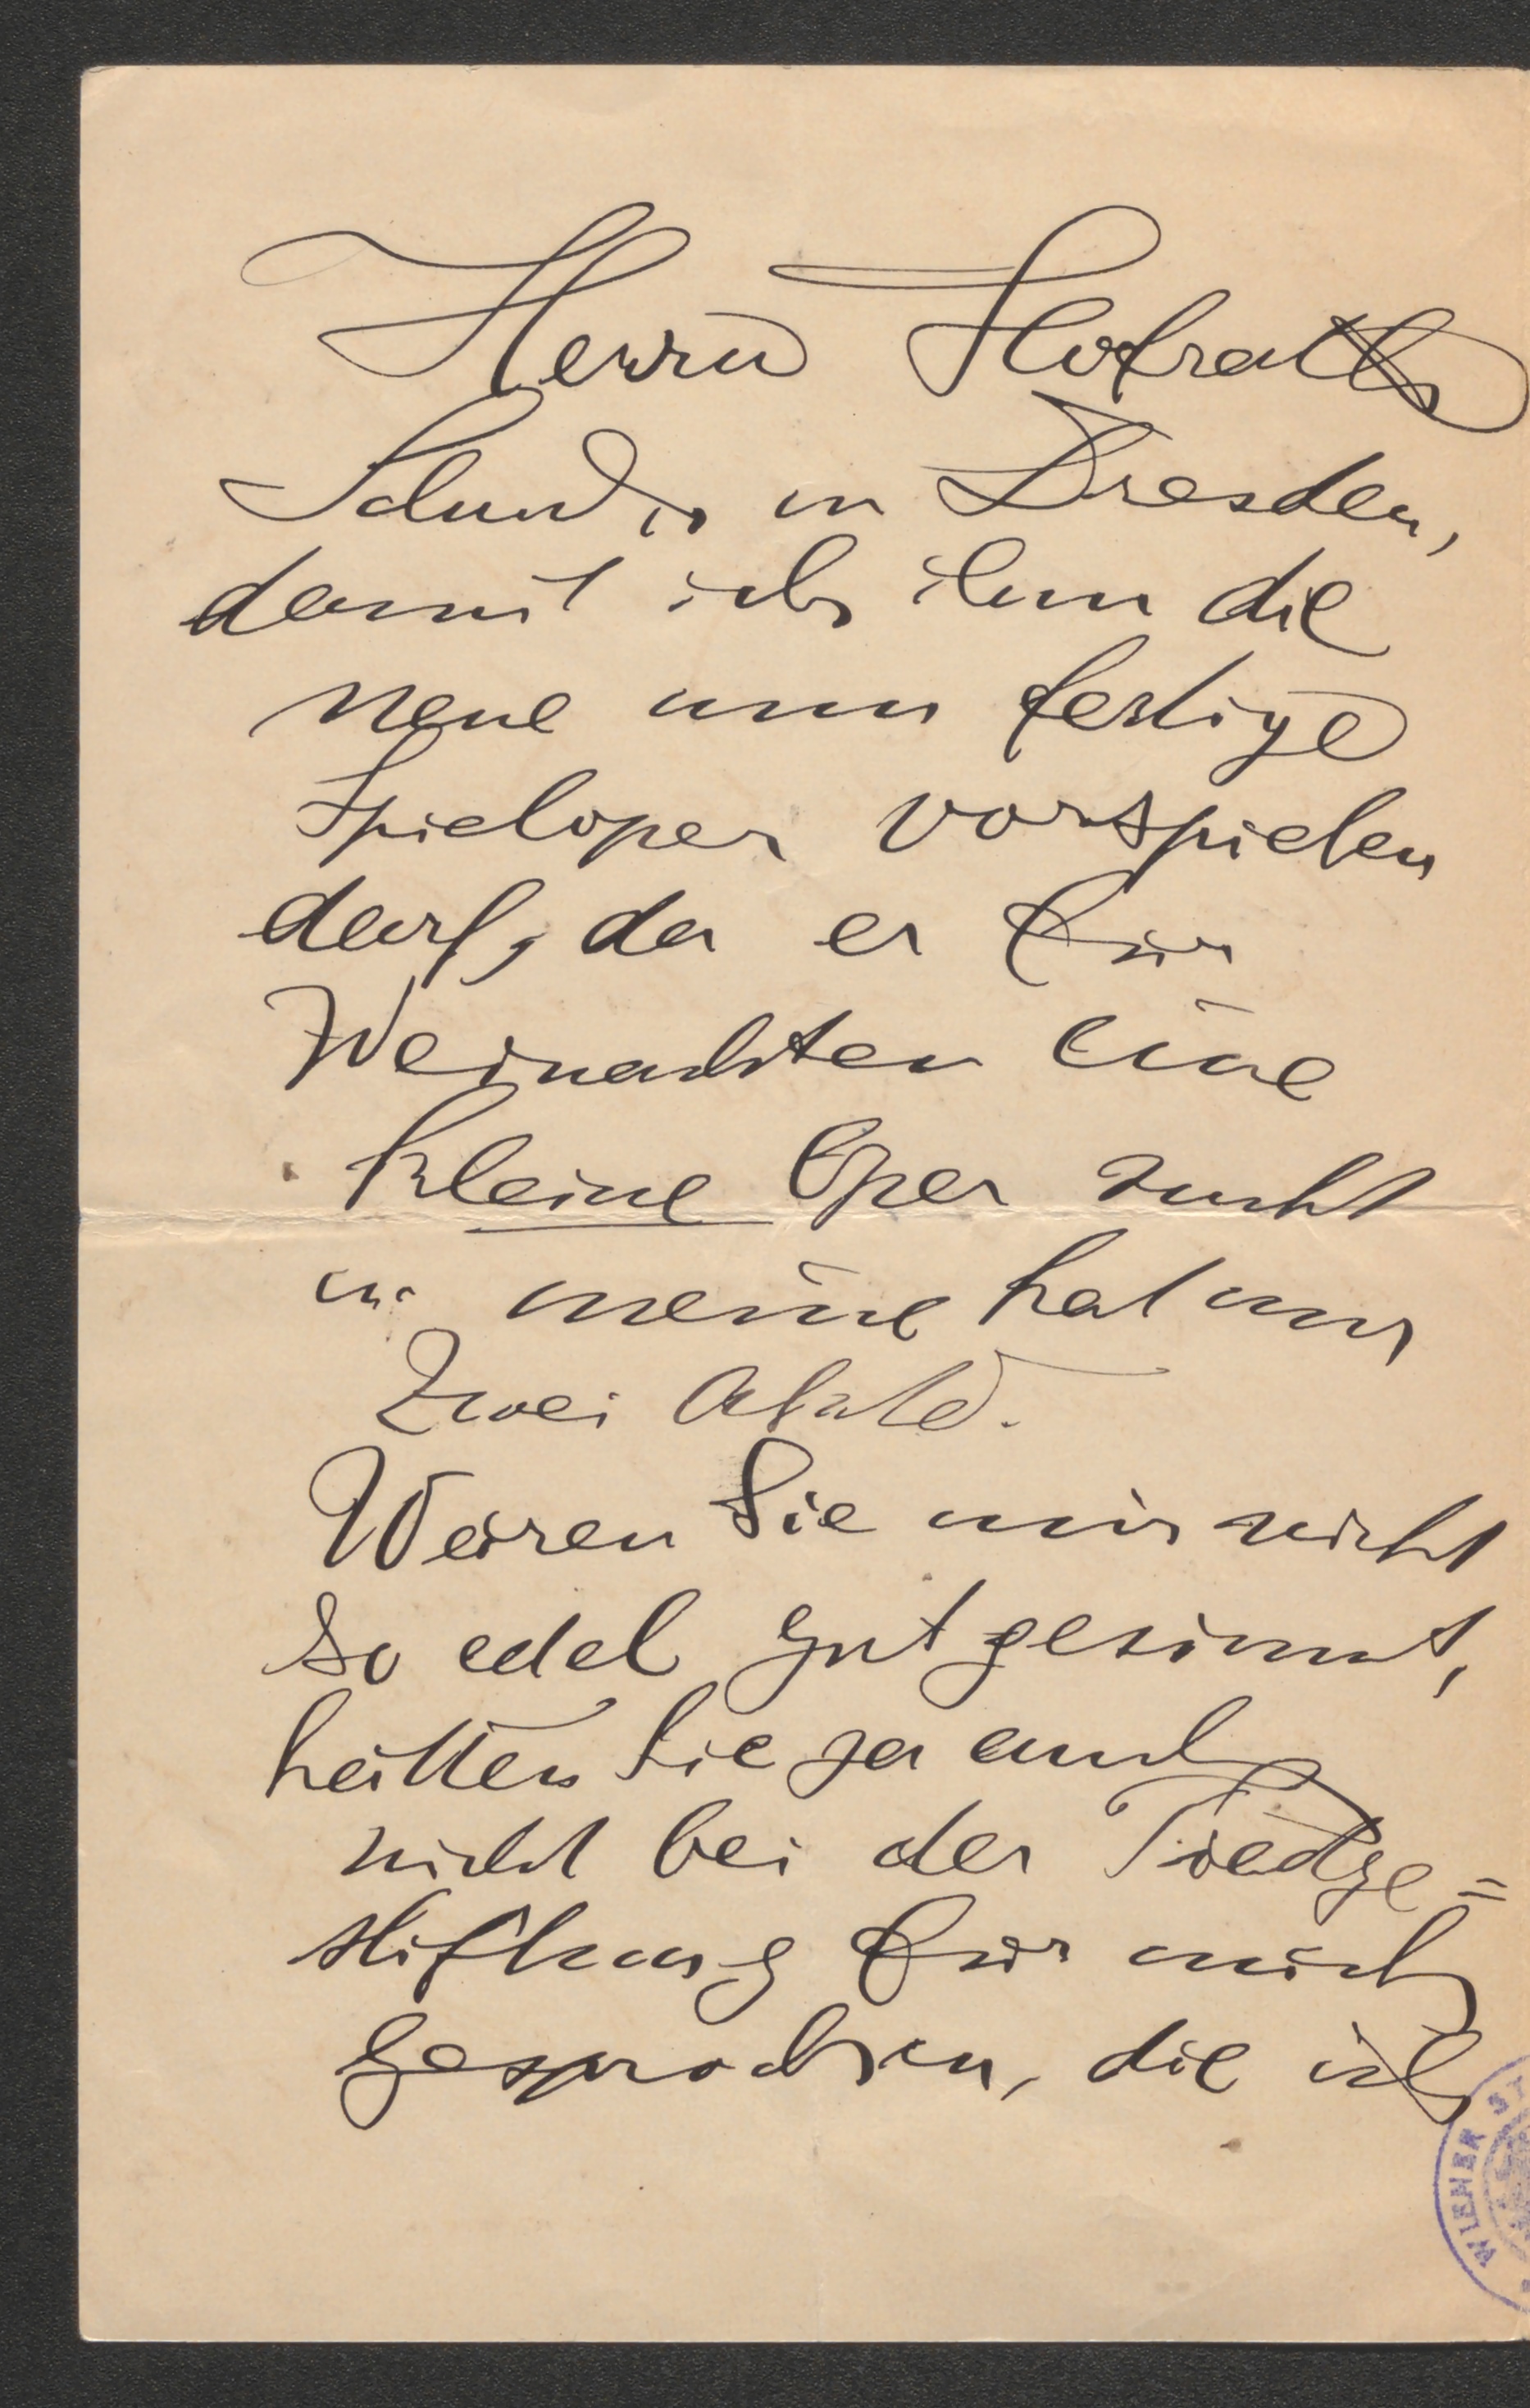 Herrn Hofrath
Schuch in Dresden,
damit ich ihm die
neue nun fertige
Spieloper vorspielen
darf, da er für
Weinachten eine
kleine Oper sucht
u. meine hat nur
zwei Akte.
Wären Sie mir nicht
so edel gut gesinnt,
hätten Sie ja auch
nicht bei der Tiedge=
stiftung für mich
gesprochen, die ich
WIENER ST